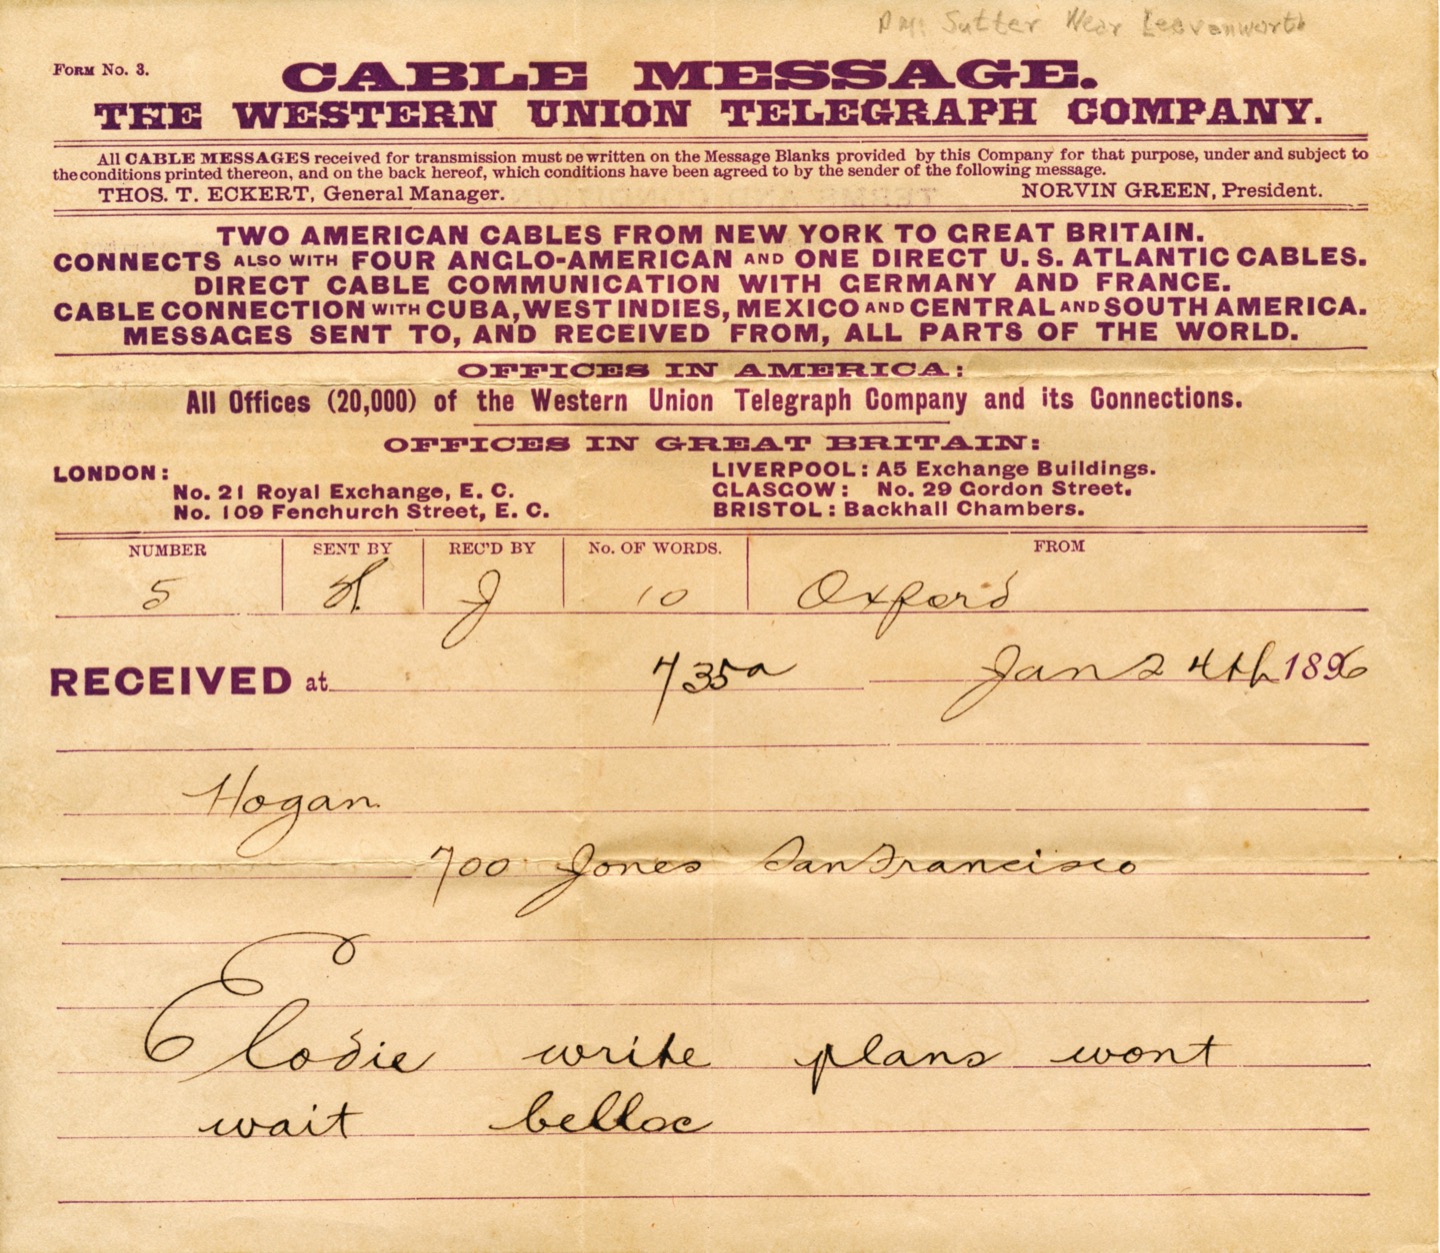 P M: Sutter Near Leavenworth
FORM No. 3.
CABLE MESSAGE.
THE WESTERN UNION TELEGRAPH COMPANY.
All CABLE MESSAGES received for transmission must be written on the Message Blanks provided by this Company for that purpose, under and subject to
the conditions printed thereon, and on the back hereof, which conditions have been agreed to by the sender of the following message.
THOS. T. ECKERT, General Manager. NORVIN GREEN, President.
TWO AMERICAN CABLES FROM NEW YORK TO GREAT BRITAIN.
CONNECTS ALSO WITH FOUR ANGLO-AMERICAN AND ONE DIRECT U. S. ATLANTIC CABLES.
DIRECT CABLE COMMUNICATION WITH GERMANY AND FRANCE.
CABLE CONNECTION WITH CUBA, WEST INDIES, MEXICO AND CENTRAL AND SOUTH AMERICA.
MESSAGES SENT TO, AND RECEIVED FROM, ALL PARTS OF THE WORLD.
OFFICES IN AMERICA:
All Offices (20,000) of the Western Union Telegraph Company and its Connections.
OFFICES IN GREAT BRITAIN:
LONDON: LIVERPOOL: A5 Exchange Buildings.
No. 21 Royal Exchange, E. C. GLASGOW: No. 29 Gordon Street.
No. 109 Fenchurch Street, E. C. BRISTOL: Backhall Chambers.
NUMBER SENT BY REC'D BY No. OF WORDS. FROM
5 H. J 10 Oxford
RECEIVED at 735a Jan 24th 1896
Hogan
700 Jones San Francisco
Elodie write plans wont
wait belloc